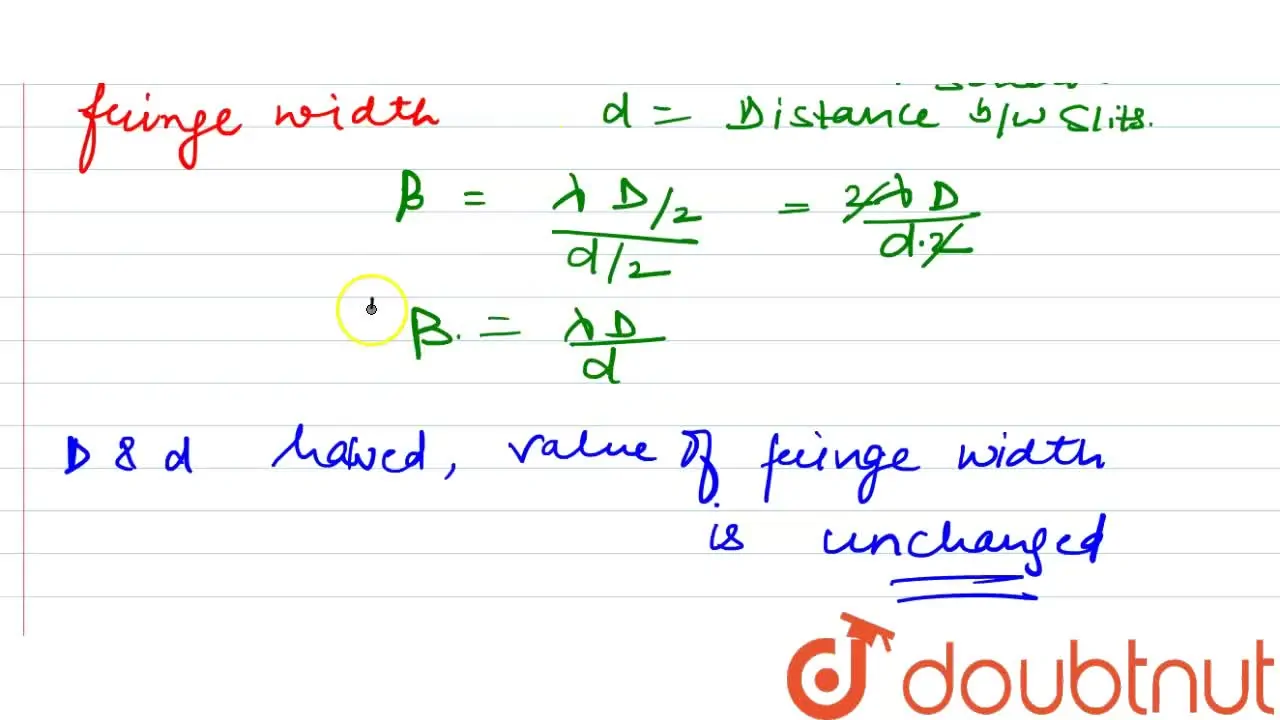 fringe width d = Distance b/w Slits.
β = λ D/2 / d/2 = 2 λ D / d.2
β. = λ D / d
D & d halved, value of fringe width
is unchanged
doubtnut